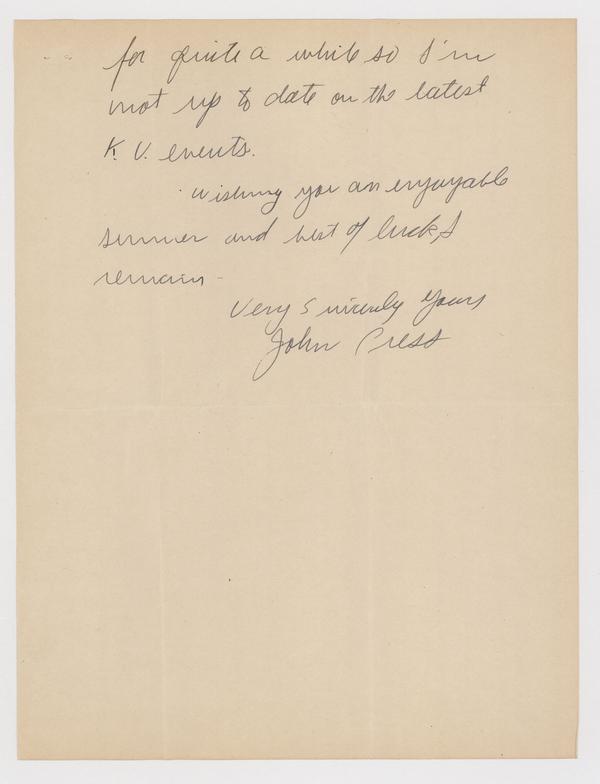 for quite a while so I'm
not up to date on the latest
K. V. events.
Wishing you an enjoyable
summer and best of luck, I
remain -
Very Sincerely Yours
John Press